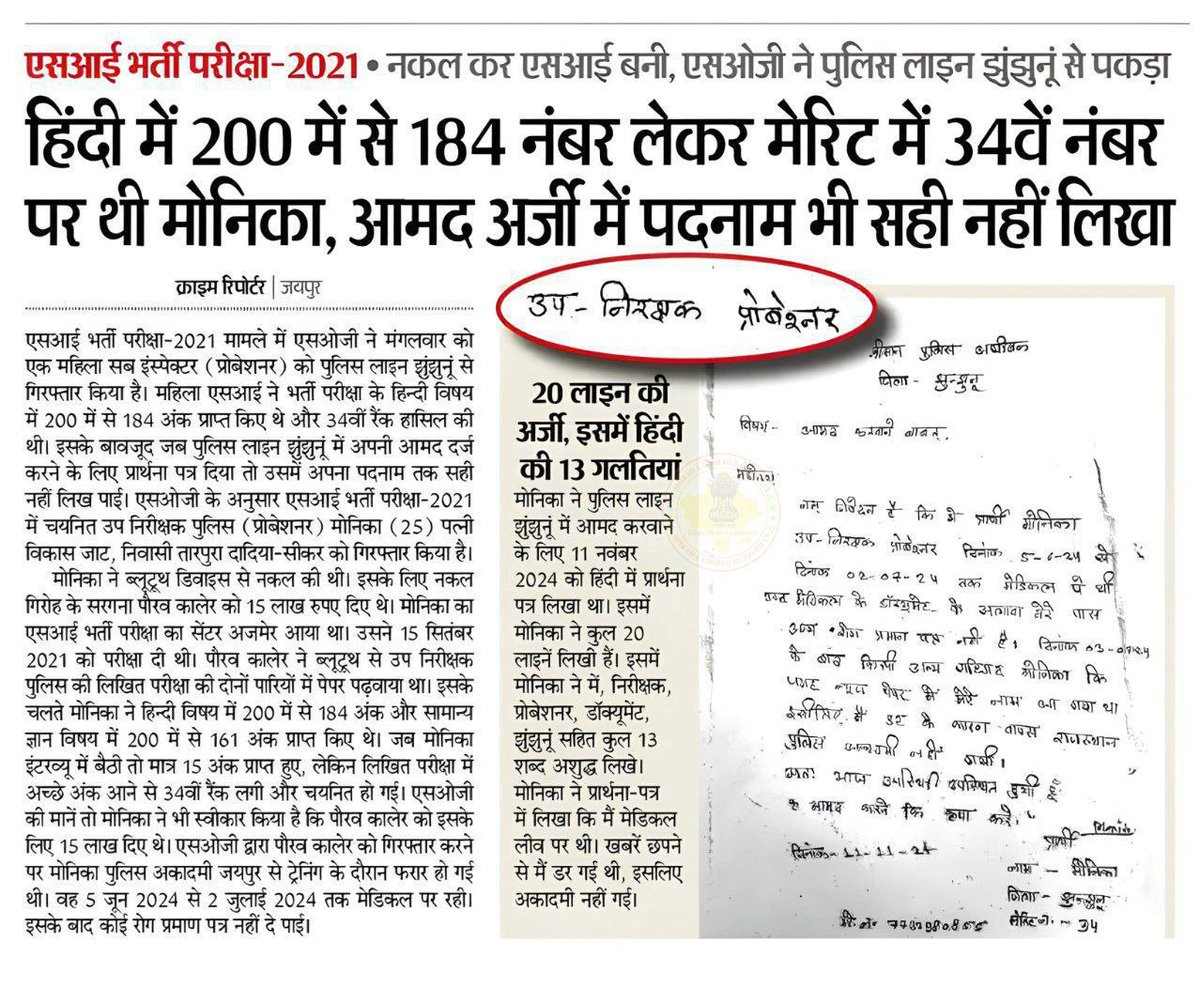 एसआई भर्ती परीक्षा-2021 • नकल कर एसआई बनी, एसओजी ने पुलिस लाइन झुंझुनूं से पकड़ा
हिंदी में 200 में से 184 नंबर लेकर मेरिट में 34वें नंबर
पर थी मोनिका, आमद अर्जी में पदनाम भी सही नहीं लिखा
क्राइम रिपोर्टर | जयपुर
एसआई भर्ती परीक्षा-2021 मामले में एसओजी ने मंगलवार को
एक महिला सब इंस्पेक्टर (प्रोबेशनर) को पुलिस लाइन झुंझुनूं से
गिरफ्तार किया है। महिला एसआई ने भर्ती परीक्षा के हिन्दी विषय
में 200 में से 184 अंक प्राप्त किए थे और 34वीं रैंक हासिल की
थी। इसके बावजूद जब पुलिस लाइन झुंझुनूं में अपनी आमद दर्ज
करने के लिए प्रार्थना पत्र दिया तो उसमें अपना पदनाम तक सही
नहीं लिख पाई। एसओजी के अनुसार एसआई भर्ती परीक्षा-2021
में चयनित उप निरीक्षक पुलिस (प्रोबेशनर) मोनिका (25) पत्नी
विकास जाट, निवासी तारपुरा दादिया-सीकर को गिरफ्तार किया है।
मोनिका ने ब्लूटूथ डिवाइस से नकल की थी। इसके लिए नकल
गिरोह के सरगना पौरव कालेर को 15 लाख रुपए दिए थे। मोनिका का
एसआई भर्ती परीक्षा का सेंटर अजमेर आया था। उसने 15 सितंबर
2021 को परीक्षा दी थी। पौरव कालेर ने ब्लूटूथ से उप निरीक्षक
पुलिस की लिखित परीक्षा की दोनों पारियों में पेपर पढ़वाया था। इसके
चलते मोनिका ने हिन्दी विषय में 200 में से 184 अंक और सामान्य
ज्ञान विषय में 200 में से 161 अंक प्राप्त किए थे। जब मोनिका
इंटरव्यू में बैठी तो मात्र 15 अंक प्राप्त हुए, लेकिन लिखित परीक्षा में
अच्छे अंक आने से 34वीं रैंक लगी और चयनित हो गई। एसओजी
की मानें तो मोनिका ने भी स्वीकार किया है कि पौरव कालेर को इसके
लिए 15 लाख दिए थे। एसओजी द्वारा पौरव कालेर को गिरफ्तार करने
पर मोनिका पुलिस अकादमी जयपुर से ट्रेनिंग के दौरान फरार हो गई
थी। वह 5 जून 2024 से 2 जुलाई 2024 तक मेडिकल पर रही।
इसके बाद कोई रोग प्रमाण पत्र नहीं दे पाई।
उप-निरक्षक प्रोबेश्नर
20 लाइन की
अर्जी, इसमें हिंदी
की 13 गलतियां
मोनिका ने पुलिस लाइन
झुंझुनूं में आमद करवाने
के लिए 11 नवंबर
2024 को हिंदी में प्रार्थना
पत्र लिखा था। इसमें
मोनिका ने कुल 20
लाइनें लिखी हैं। इसमें
मोनिका ने में, निरीक्षक,
प्रोबेशनर, डॉक्यूमेंट,
झुंझुनूं सहित कुल 13
शब्द अशुद्ध लिखे।
मोनिका ने प्रार्थना-पत्र
में लिखा कि मैं मेडिकल
लीव पर थी। खबरें छपने
से मैं डर गई थी, इसलिए
अकादमी नहीं गई।
श्रीमान पुलिस
जिला - झुन्झुनू
विषय - आमद करवाने बाबत्,
महोदय
नम्र निवेदन है कि मे प्रार्थी मोनिका
उप-निरक्षक प्रोबेश्नर दिनांक 5-6-24 से
दिनांक 02-07-24 तक मेडिकल पे थी
के अलावा मेरे पास
प्रमाण पत्र नहीं है। दिनांक
के बाद किसी अन्य मोनिका कि
जगह न्यूज पेपर मे मेरे नाम आ गया था
इसीलिए मै डर के कारण वापस राजस्थान
पुलिस नहीं गयी।
अतः आज उपस्थित हुयी हूँ
आमद करने कि कृपा करे।
प्रार्थी
दिनांक - 11-11-24
नाम - मोनिका
जिला - झुन्झुनू
मेरिट नं. - 34